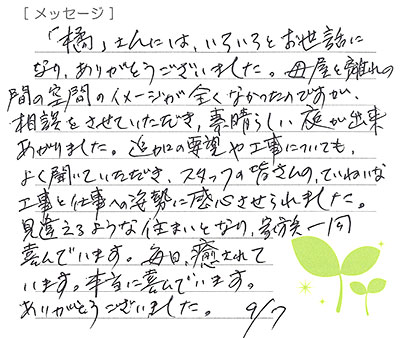 [メッセージ]
「橘」さんには、いろいろとお世話に
なり、ありがとうございました。母屋と離れの
間の空間のイメージが全くなかったのですが、
相談をさせていただき、素晴らしい庭が出来
あがりました。追加の要望や工事についても、
よく聞いていただき、スタッフの皆さんの、ていねいな
工事と仕事への姿勢に感心させられました。
見違えるような住まいとなり、家族一同
喜んでいます。毎日、癒されて
います。本当に喜んでいます。
ありがとうございました。 9/7